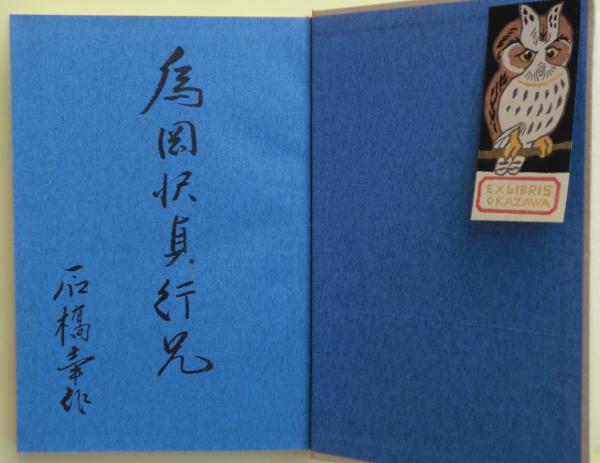 為岡沢貞行兄
石橋幸作
EXLIBRIS
OKAZAWA